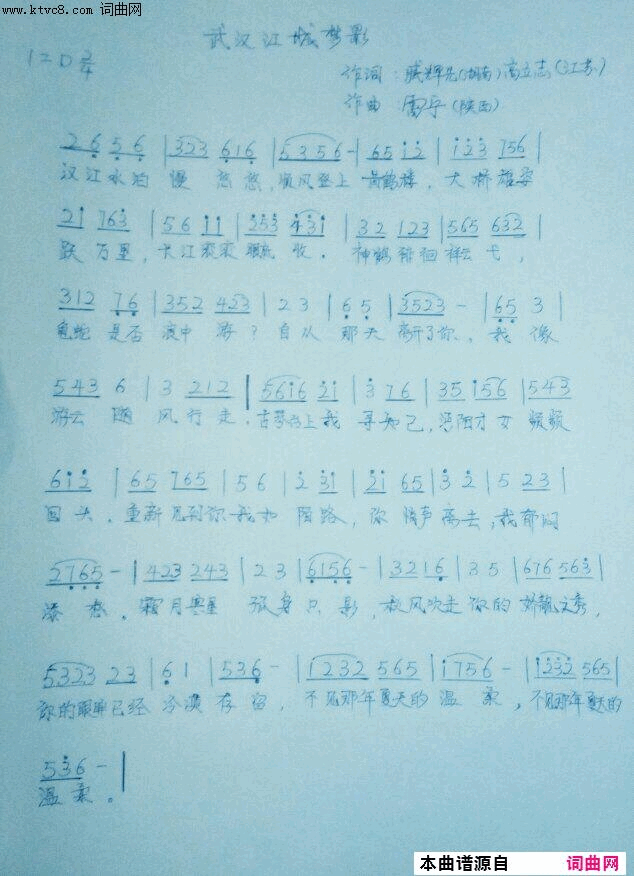 www.ktvc8.com 词曲网
武汉江城梦影
1=D 2/4
作词：臧辉先(湖南)高立志(江苏)
作曲：雷宇(陕西)
2656 | 323 616 | 5356- | 65 12 | 123 756 |
汉江水泊 慢 悠 悠，顺风登上 黄鹤楼，大桥雄姿
21 763 | 56 11 | 253 431 | 32 123 | 565 632 |
跃 万里，长江滚滚 收。神鹤徘徊祥云 弋，
312 76 | 352 423 | 2 3 | 6 5 | 3523 - | 65 3 |
龟蛇 是否 浪中 游？自从 那天 离开了你，我 像
543 6 | 3 212 | 5616 21 | 3 76 | 35 156 | 543
游云 随 风行走，古琴台上我 寻知己，汉阳才女 频频
612 | 65 765 | 56 | 2 31 | 21 65 | 3 2 | 5 23 |
回头。重新见到你我如 陌路，你 悄声离去，我郁闷
2765 - | 423 243 | 2 3 | 6156 - | 3216 | 3 5 | 676 563 |
添 愁。霜月寒星 孤身只影，秋风吹走你的
5323 23 | 6 1 | 536 - | 1232 565 | 1756 - | 1232 565 |
你的眼眸已经 冷漠存留，不见那年夏天的 温 柔，不见那年夏天的
536 - |
温 柔。
本曲谱源自 词曲网